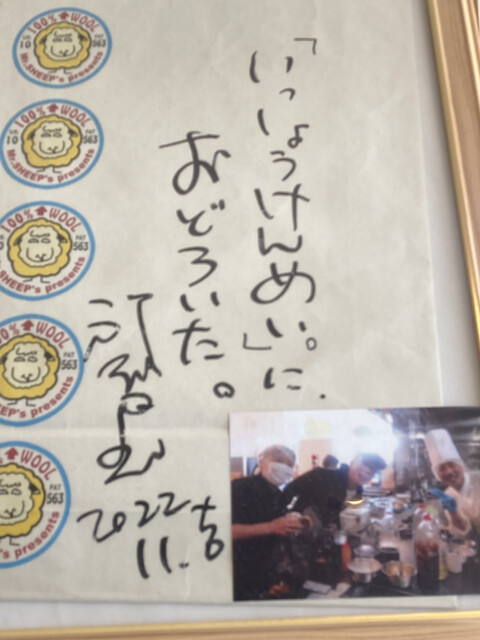 「いっしょうけんめい。」に.
おどろいた。
2022
11.
100% WOOL
Mr.SHEEP's presents
PAT
563
10
100% WOOL
Mr.SHEEP's presents
PAT
563
10
100% WOOL
SHEEP's presents
PAT
563
100% WOOL
SHEEP's presents
PAT
563
WOOL
presents
PAT
563